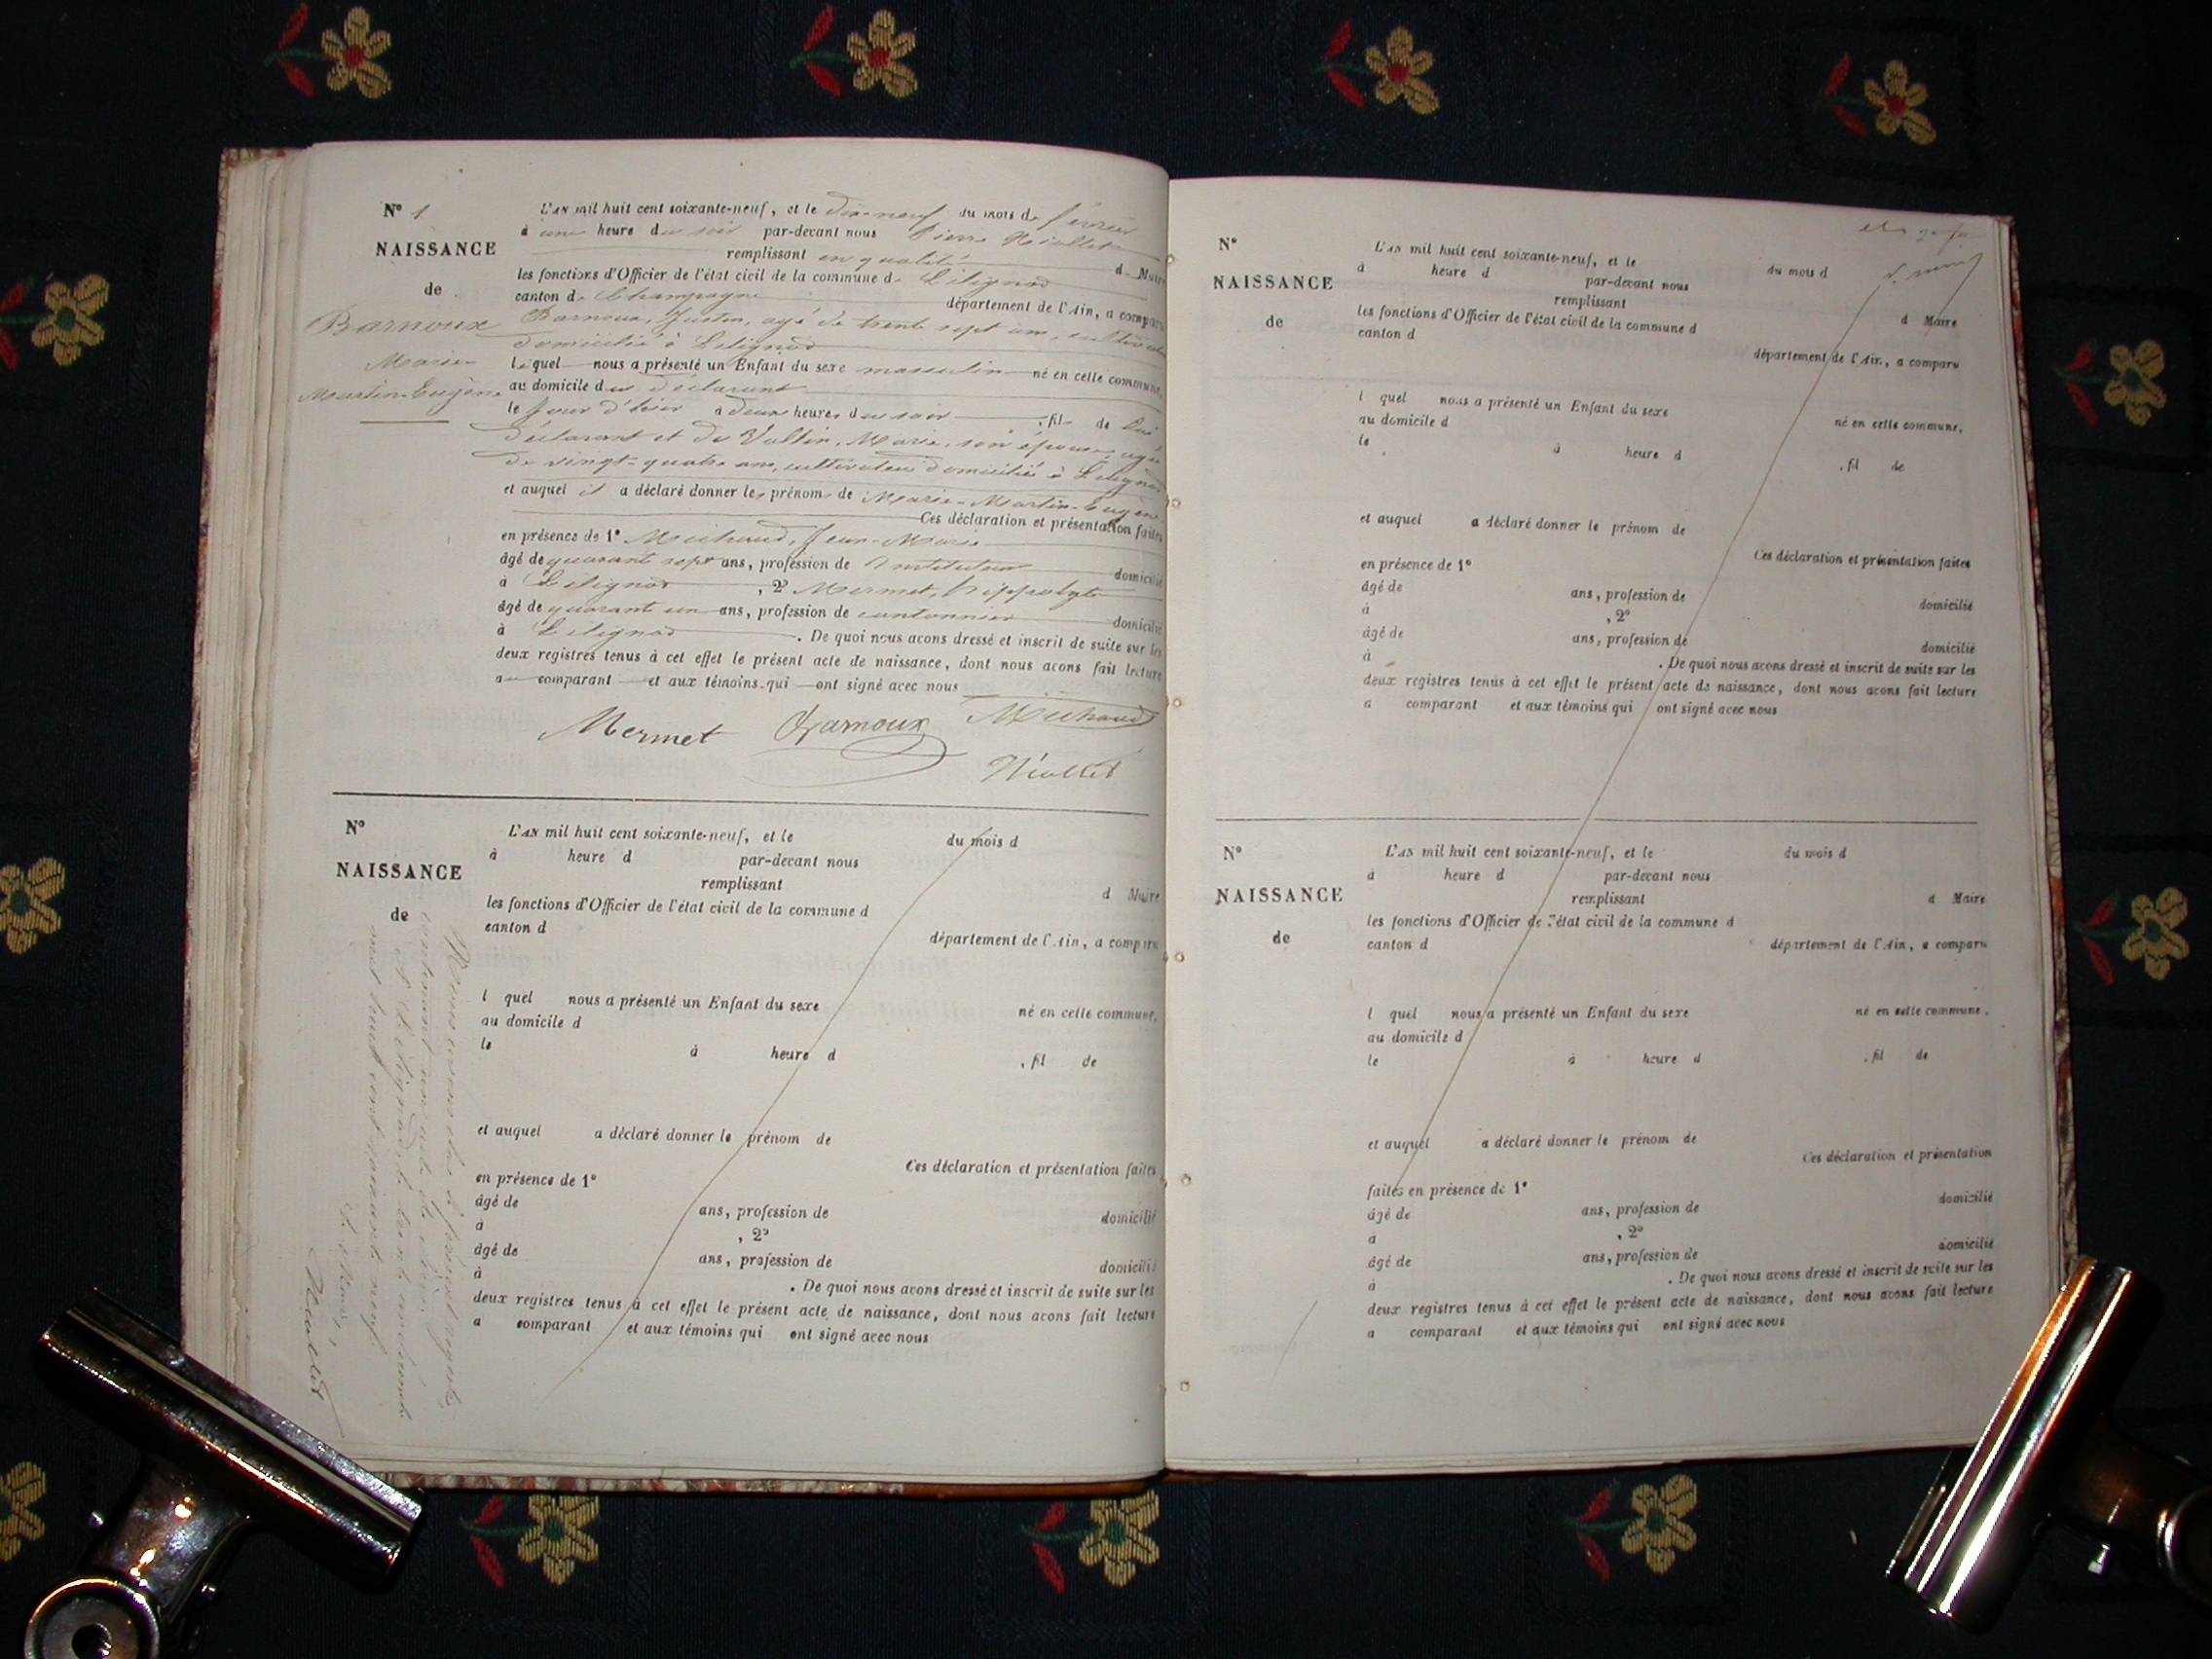 N° 1
NAISSANCE
de
Barnoux
Marie-
Martin-Eugène
L'AN mil huit cent soixante-neuf, et le dix-neuf du mois de février
à une heure du soir par-devant nous Pierre
remplissant en qualité d Maire
les fonctions d'Officier de l'état civil de la commune de Lilignod
canton de Champagne département de l'Ain, a comparu
Barnoux, Justin, agé de trente sept ans, cultivateur
domicilié à Lilignod
lequel nous a présenté un Enfant du sexe masculin né en cette commune,
au domicile du déclarant
le jour d'hier à deux heures du soir , fils de lui
déclarant et de Vallin, Marie, son épouse, agée
de vingt-quatre ans, cultivateurs domiciliés à Lilignod
et auquel il a déclaré donner les prénoms de Marie-Martin-Eugène
Ces déclaration et présentation faites
en présence de 1° Michaud, Jean-Marie
âgé de quarant sept ans, profession de Instituteur domicilié
à Lilignod , 2° Mermet, hippolyte
âgé de quarant un ans, profession de cantonnier domicilié
à Lilignod . De quoi nous avons dressé et inscrit de suite sur les
deux registres tenus à cet effet le présent acte de naissance, dont nous avons fait lecture
a comparant et aux témoins qui ont signé avec nous
Mermet Barnoux Michaud
N°
NAISSANCE
de
L'AN mil huit cent soixante-neuf, et le du mois d
à heure d par-devant nous
remplissant d Maire
les fonctions d'Officier de l'état civil de la commune d
canton d
département de l'Ain, a comparu
l quel nous a présenté un Enfant du sexe né en cette commune,
au domicile d
le à heure d , fil de
et auquel a déclaré donner le prénom de
Ces déclaration et présentation faites
en présence de 1°
âgé de ans, profession de domicilié
à , 2°
âgé de ans, profession de domicilié
à . De quoi nous avons dressé et inscrit de suite sur les
deux registres tenus à cet effet le présent acte de naissance, dont nous avons fait lecture
a comparant et aux témoins qui ont signé avec nous
contenant
mil huit cent soixante neuf.
Le Maire,
N°
NAISSANCE
de
L'AN mil huit cent soixante-neuf, et le du mois d
à heure d par-devant nous
remplissant d Maire
les fonctions d'Officier de l'état civil de la commune d
canton d
département de l'Ain, a comparu
l quel nous a présenté un Enfant du sexe né en cette commune,
au domicile d
le à heure d , fil de
et auquel a déclaré donner le prénom de
Ces déclaration et présentation faites
en présence de 1°
âgé de ans, profession de domicilié
à , 2°
âgé de ans, profession de domicilié
à . De quoi nous avons dressé et inscrit de suite sur les
deux registres tenus à cet effet le présent acte de naissance, dont nous avons fait lecture
a comparant et aux témoins qui ont signé avec nous
N°
NAISSANCE
de
L'AN mil huit cent soixante-neuf, et le du mois d
à heure d par-devant nous
remplissant d Maire
les fonctions d'Officier de l'état civil de la commune d
canton d département de l'Ain, a comparu
l quel nous a présenté un Enfant du sexe né en cette commune,
au domicile d
le à heure d , fil de
et auquel a déclaré donner le prénom de
Ces déclaration et présentation
faites en présence de 1°
âgé de ans, profession de domicilié
à , 2°
âgé de ans, profession de domicilié
à . De quoi nous avons dressé et inscrit de suite sur les
deux registres tenus à cet effet le présent acte de naissance, dont nous avons fait lecture
a comparant et aux témoins qui ont signé avec nous